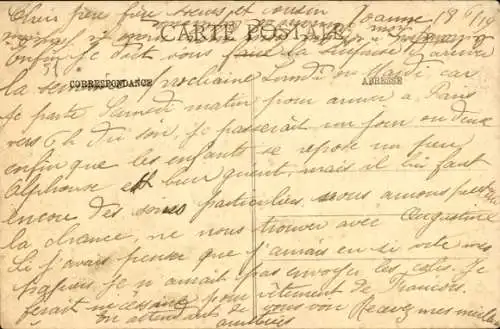 Chers père frère sœurs et cousin Roanne 18
CARTE POSTALE
Enfin je puis vous faire la surprise d'arriver
CORRESPONDANCE
ADRESSE
la semaine prochaine Lundi ou Mardi car
je parts Samedi matin pour arriver a Paris
vers 6 h du soir, je passerait un jour ou deux
enfin que les enfants se repose un peu
Alphonse et bien guerit, mais il lui faut
encore des soins particuliers. nous avons
la chance, de nous trouver avec Augustine
Si j'avais penser que j'aurais eu si vite mes
Papiers je n'aurait pas envoyer les colis. Je
ferait nécessaire pour vêtement de François.
En attendant de vous voir Recevez mes meilleures
amitiés